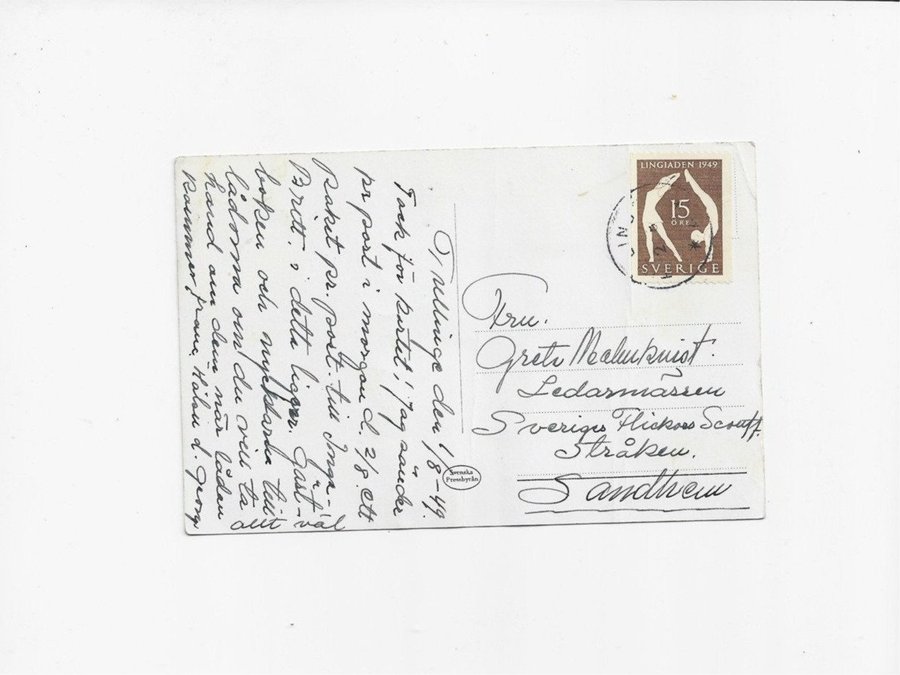 den 1/8-49.
Tack för kortet! Jag sänder
pr post i morgon d. 2/8. ett
paket pr. post. till Inga-
Britt. i detta ligger. Gäst-
boken och nycklarna till
lådorna om du vill ta
hand om dem när lådan
kommer fram, Hälsn d. Georg
allt väl
Svenska
Pressbyrån
LINGIADEN 1949
15
ÖRE
SVERIGE
Fru.
Greta Malmkvist.
Ledarmässen
Sveriges Flickors Scoutf.
Stråken.
Sandhem